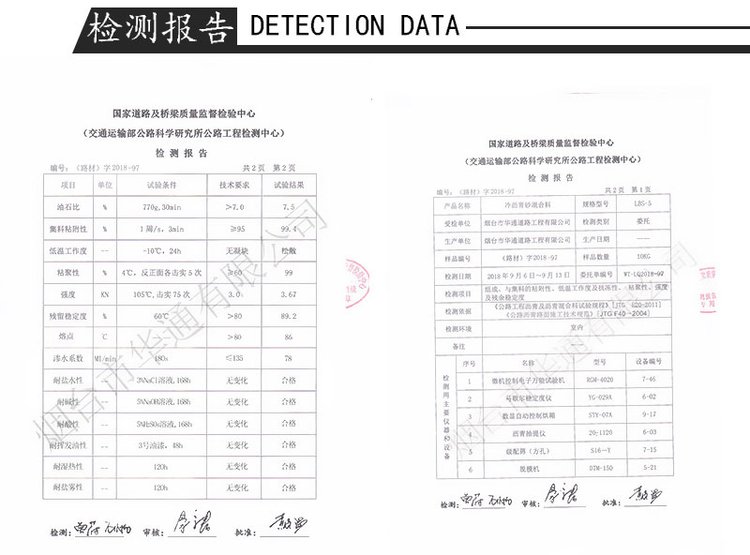 检测报告 DETECTION DATA
国家道路及桥梁质量监督检验中心
（交通运输部公路科学研究所公路工程检测中心）
检 测 报 告
编号：《路材》字2018-97 共2页 第2页
项目 单位 试验条件 技术要求 试验结果
油石比 % 270g,30min >7.0 7.5
集料粘附性 % 1周/s, 3min ≥95 99.4
低温工作度 -- -10℃, 24h 无凝块 松散
粘聚性 % 4℃, 反正面各击实5次 ≥60 99
强度 KN 105℃,击实75次 3.0 3.67
残留稳定度 % 60℃ >80 89.2
熔点 % >80 86
渗水系数 Ml/min 480s ≤135 78
耐盐水性 -- 3%NaCl溶液,168h 无变化 合格
耐碱性 -- 5%NaOH溶液,168h 无变化 合格
耐酸性 -- 5%H2SO4溶液,168h 无变化 合格
耐挥发油性 -- 3号油漆, 48h 无变化 合格
耐湿热性 -- 120h 无变化 合格
耐盐雾性 -- 120h 无变化 合格
检测： 审核： 批准：
国家道路及桥梁质量监督检验中心
（交通运输部公路科学研究所公路工程检测中心）
检 测 报 告
编号：《路材》字2018-97 共2页 第1页
产品名称 冷沥青砂混合料 规格型号 LBS-5
受检单位 烟台市华通道路工程有限公司 检测类别 委托
生产单位 烟台市华通道路工程有限公司 生产日期 ——
样品编号 《路材》字2018-97 样品数量 10KG
检测日期 2018年9月6日~9月13日 委托单编号 WT-LQ2018-97
检测项目 组成、与集料的粘附性、低温工作度及抗冻性、粘聚性、强度及残余稳定度
检测依据 《公路工程沥青及沥青混合料试验规程》[JTG E20-2011]
《公路沥青路面施工技术规范》[JTG F40-2004]
检测环境 室内
备注 ——
检测用主要仪器和设备
序号 名称 型号 设备编号
1 微机控制电子万能试验机 RGM-4020 7-46
2 马歇尔稳定度仪 YG-029A 6-02
3 数显自动控制烘箱 STY-07A 9-17
4 沥青抽提仪 20-1120 6-03
5 级配筛（方孔） S16-Y 7-15
6 脱模机 DTM-150 5-21
检测： 审核： 批准：
烟台市华通有限公司
烟台市华通有限公司